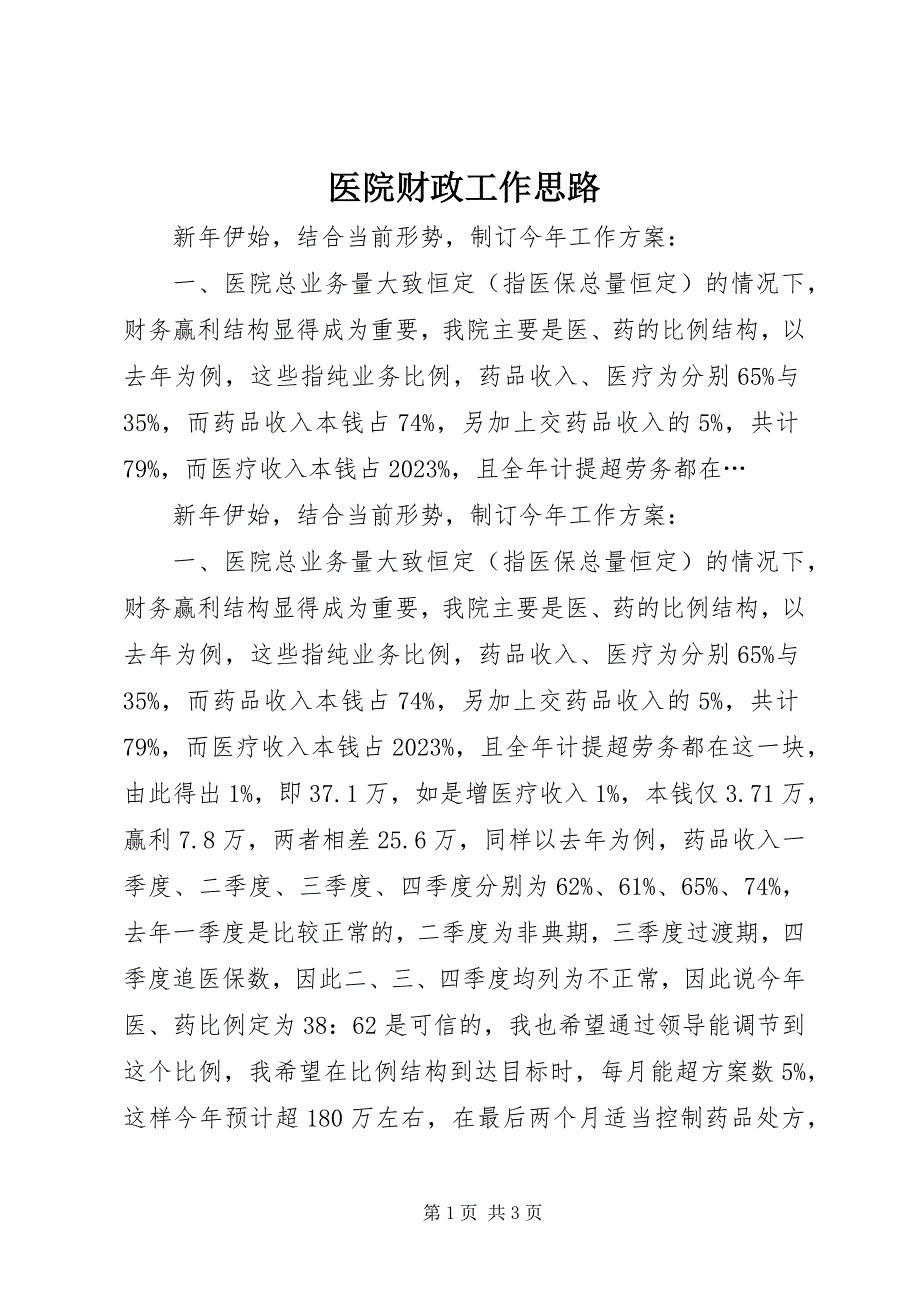 医院财政工作思路
新年伊始，结合当前形势，制订今年工作方案：
一、医院总业务量大致恒定（指医保总量恒定）的情况下，
财务赢利结构显得成为重要，我院主要是医、药的比例结构，以
去年为例，这些指纯业务比例，药品收入、医疗为分别 65%与
35%，而药品收入本钱占 74%，另加上交药品收入的 5%，共计
79%，而医疗收入本钱占 2023%，且全年计提超劳务都在…
新年伊始，结合当前形势，制订今年工作方案：
一、医院总业务量大致恒定（指医保总量恒定）的情况下，
财务赢利结构显得成为重要，我院主要是医、药的比例结构，以
去年为例，这些指纯业务比例，药品收入、医疗为分别 65%与
35%，而药品收入本钱占 74%，另加上交药品收入的 5%，共计
79%，而医疗收入本钱占 2023%，且全年计提超劳务都在这一块，
由此得出 1%，即 37.1 万，如是增医疗收入 1%，本钱仅 3.71 万，
赢利 7.8 万，两者相差 25.6 万，同样以去年为例，药品收入一
季度、二季度、三季度、四季度分别为 62%、61%、65%、74%，
去年一季度是比较正常的，二季度为非典期，三季度过渡期，四
季度追医保数，因此二、三、四季度均列为不正常，因此说今年
医、药比例定为 38：62 是可信的，我也希望通过领导能调节到
这个比例，我希望在比例结构到达目标时，每月能超方案数 5%，
这样今年预计超 180 万左右，在最后两个月适当控制药品处方，
第 1 页 共 3 页